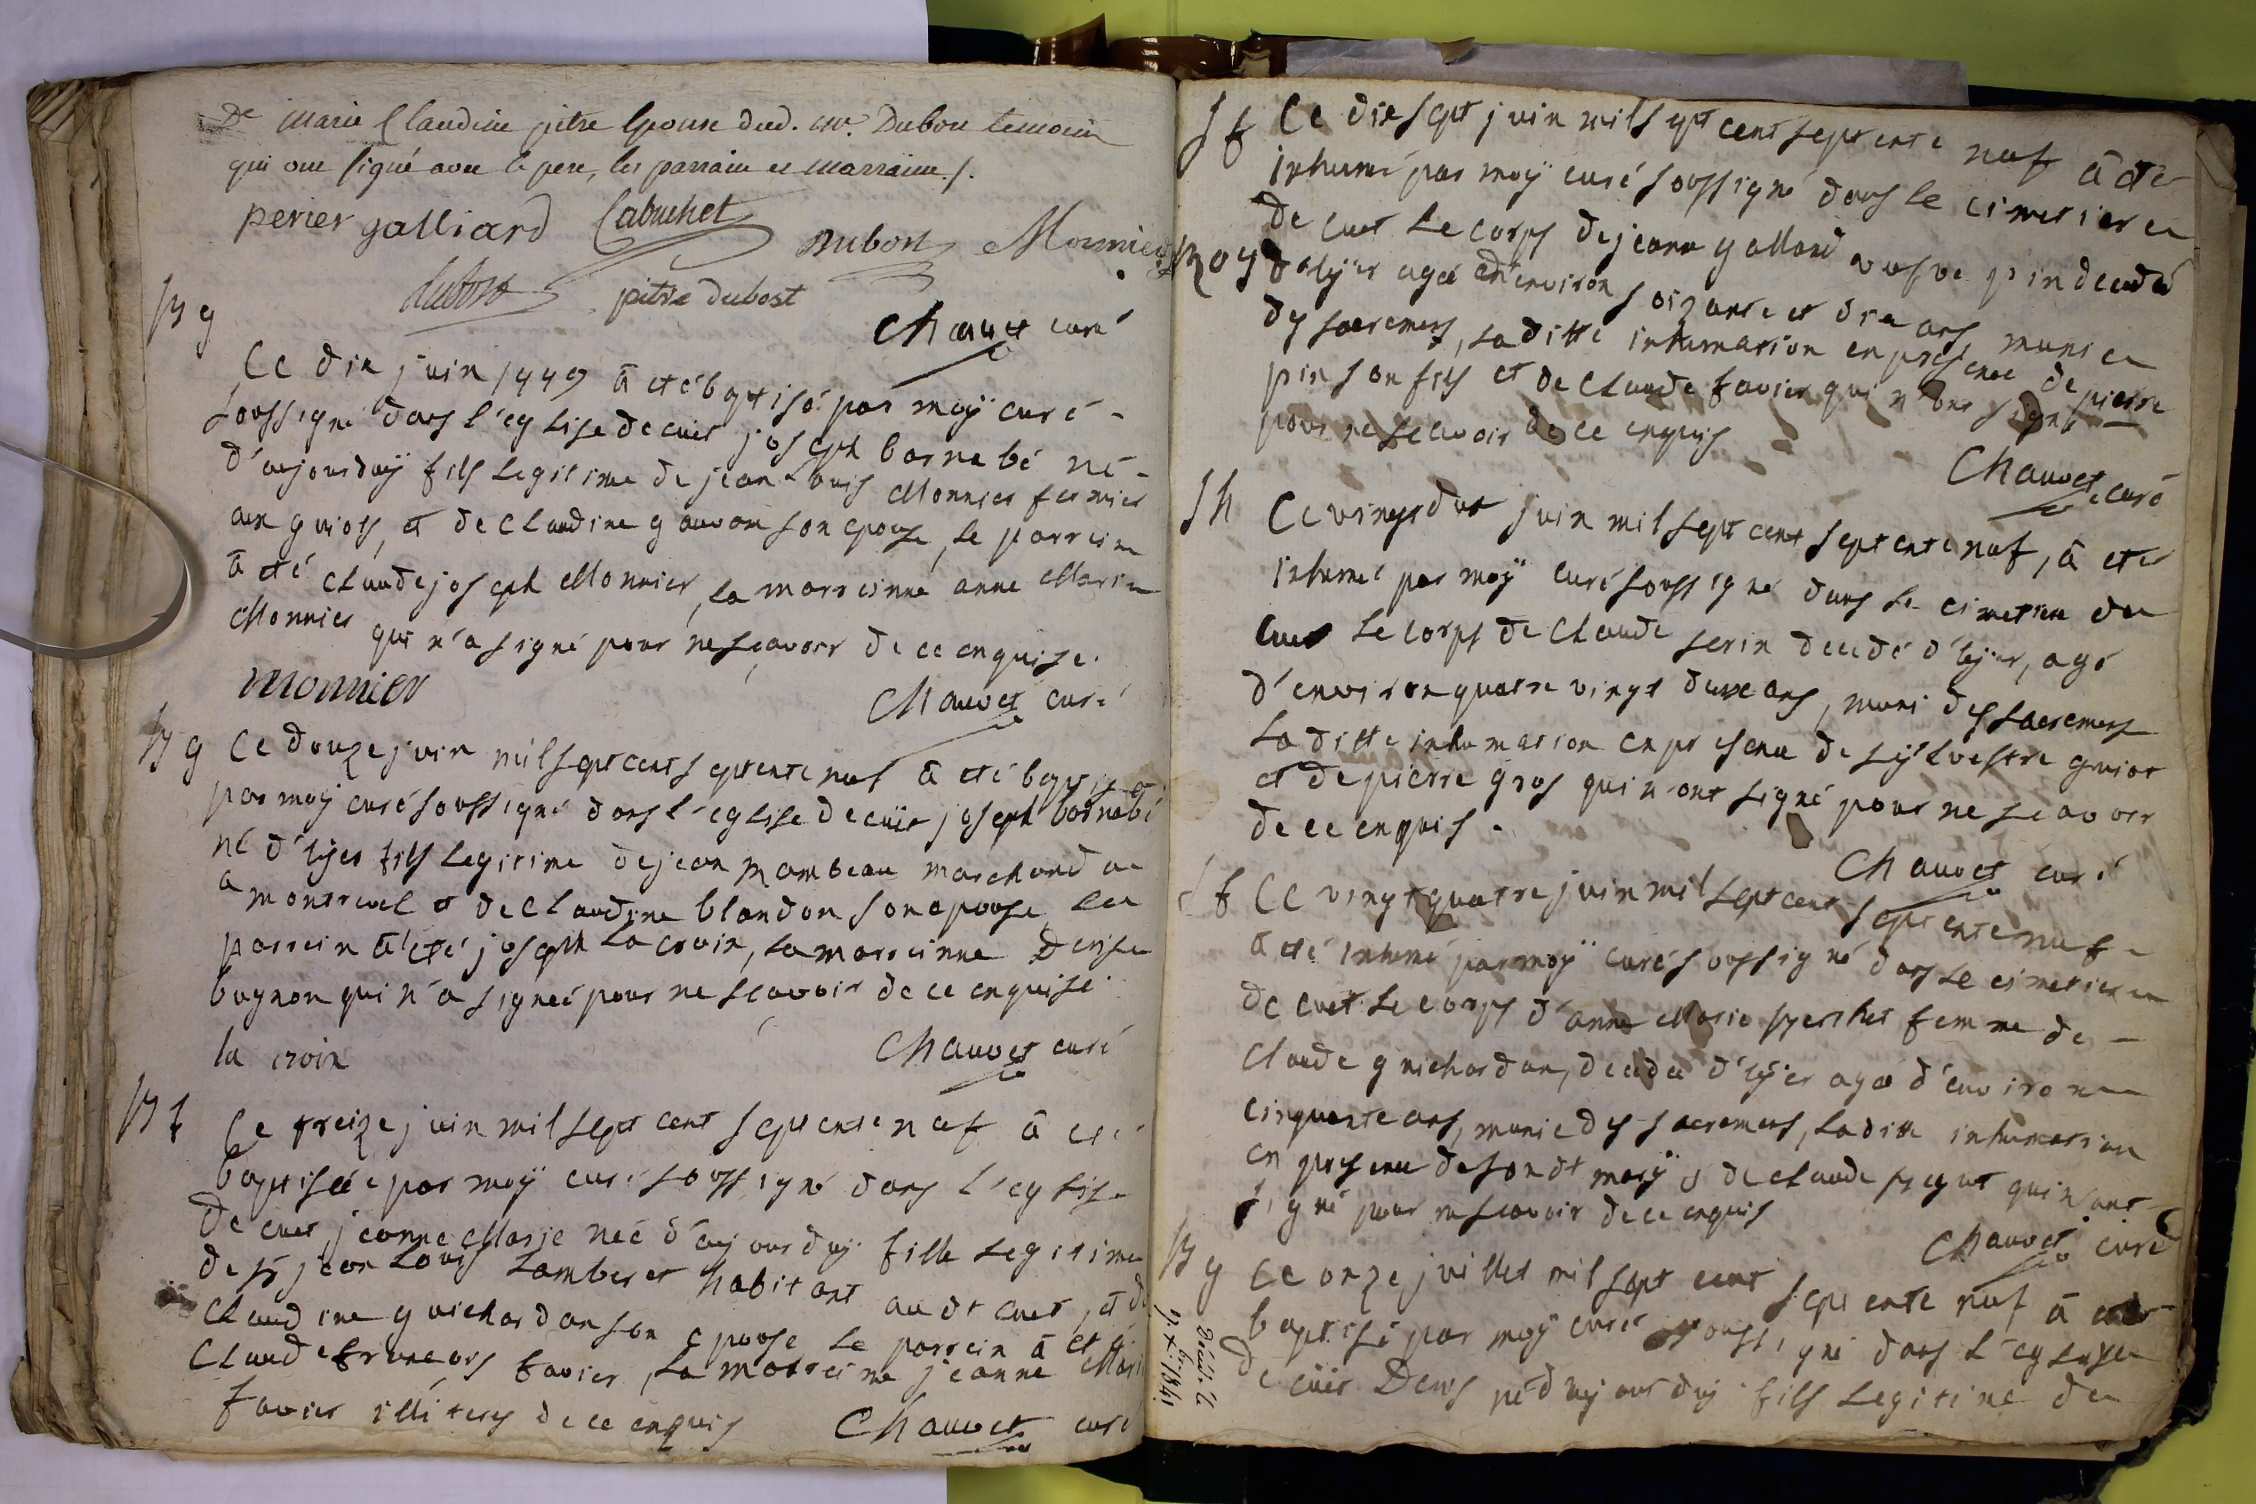 De Marie Claudine pitre Epouse dud. sr. Dubou temoin
qui ont signé avec le pere, les parrain et marraine./.
perier galliard Cabuchet
Dubost Monnier
dubost pitre dubost
Chauvet curé
B g
Ce dix juin 1779 à eté baptisé par moÿ curé -
soussigné dans l'eglise de cuet joseph barnabé né -
d'aujourduÿ fils legitime de jean Louis Monnier fermier
aux guiots, et de Claudine gauvan son epouse, le parrein
à eté Claude joseph Monnier, la marreinne anne Marie
Monnier qui n'a signé pour ne sçavoir de ce enquise.
monnier Chauvet curé
B g Ce douze juin mil sept cent septente neuf à eté baptisé
par moÿ curé soussigné dans l'eglise de cuet joseph barnabé
né d'hÿer fils legitime de jean Mambeau marchand
a montrevel et de Claudine blandon son epouse le
parrein à eté joseph la croix, la marreinne Denise
bugnon qui n'a signeé pour ne scavoir de ce enquise
la croix Chauvet curé
B f Ce treize juin mil sept cent septente neuf à eté
baptiséé par moÿ curé soussigné dans l'eglise
de cuet jeanne Marie neé d'aujourduÿ fille legitime
de sr jean Louis Lamberet habitant audt cuet, et de
Claudine guichardan son epouse le parrein à eté
Claude francois favier, la marreine jeanne Marie
favier illiterés de ce enquis Chauvet curé
S f Ce dix sept juin mil sept cent septente neuf à eté
inhumé par moÿ curé soussigné dans le cimetiere
de cuet le corps de jeanne gallard veufve pin decedeé
d'hÿer ageé d'environ soizante et dix ans, munie
des sacremens, la ditte inhumation en presence de pierre
pin son fils et de Claude favier qui n'ont signé
pour ne scavoir de ce enquis
Chauvet curé
S h Ce vingt deux juin mil sept cent septente neuf, à eté
inhumé par moÿ curé soussigné dans le cimetiere de
cuet le corps de Claude serin decedé d'hÿer, agé
d'environ quatre vingt deux ans, muni des sacremens
la ditte inhumation en presence de sÿlvestre guiot
et de pierre gros qui n'ont signé pour ne scavoir
de ce enquis.
Chauvet curé
S f Ce vingt quatre juin mil sept cent septente neuf
à eté inhumé par moÿ curé soussigné dans le cimetiere
de cuet le corps d'anne Marie perchet femme de -
Claude guichardan, decedeé d'hÿer ageé d'environ
cinquante ans, munie des sacremens, la ditte inhumation
en presence de son dt marÿ et de Claude qui n'ont
signé pour ne scavoir de ce enquis
Chauvet curé
B g Ce onze juillet mil sept cent septente neuf à eté
baptisé par moÿ curé soussigné dans l'eglise
de cuet Denis né d'aujourduÿ fils legitime de
décédé le